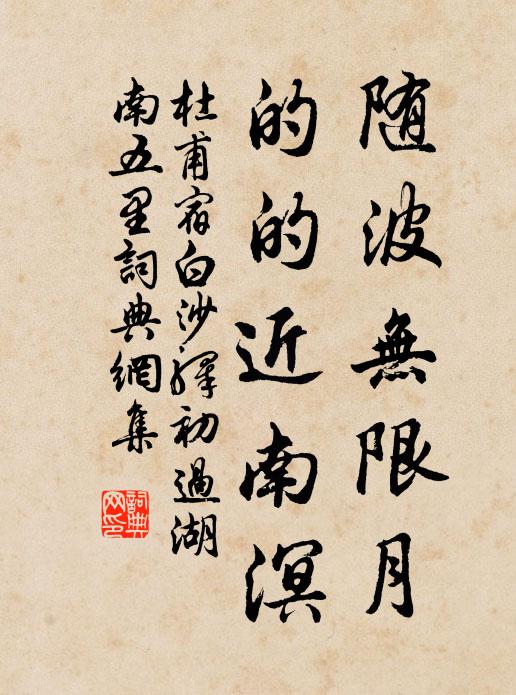 随波無限月
的的近南溟
杜甫宿白沙驛初過湖
南五里詞典網集
詞典
网印